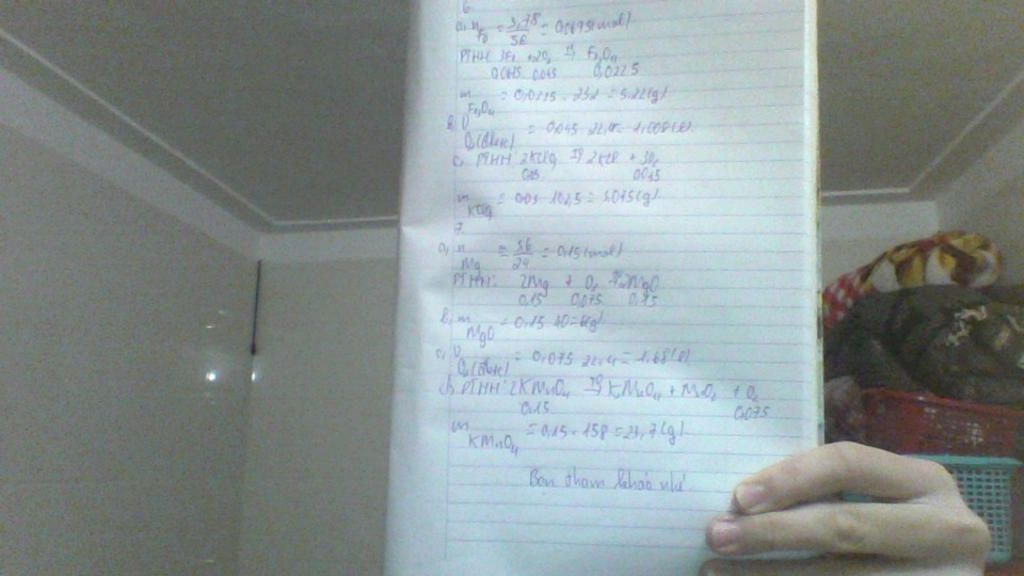 6
a, nFe = 3,78/56 = 0,0675(mol)
PTHH: 3Fe + 2O2 to→ Fe3O4
0,0675 0,045 0,0225
mFe3O4 = 0,0225 . 232 = 5,22(g)
b, VO2(đktc) = 0,045 . 22,4 = 1,008(l)
c, PTHH 2KClO3 to→ 2KCl + 3O2
0,03 0,045
mKClO3 = 0,03 . 102,5 = 3,075(g)
7
a, nMg = 3,6/24 = 0,15(mol)
PTHH: 2Mg + O2 to→ 2MgO
0,15 0,075 0,15
b, mMgO = 0,15 . 40 = 6(g)
c, VO2(đktc) = 0,075 . 22,4 = 1,68(l)
d, PTHH: 2KMnO4 to→ K2MnO4 + MnO2 + O2
0,15 0,075
mKMnO4 = 0,15 . 158 = 23,7(g)
Bạn tham khảo nhé